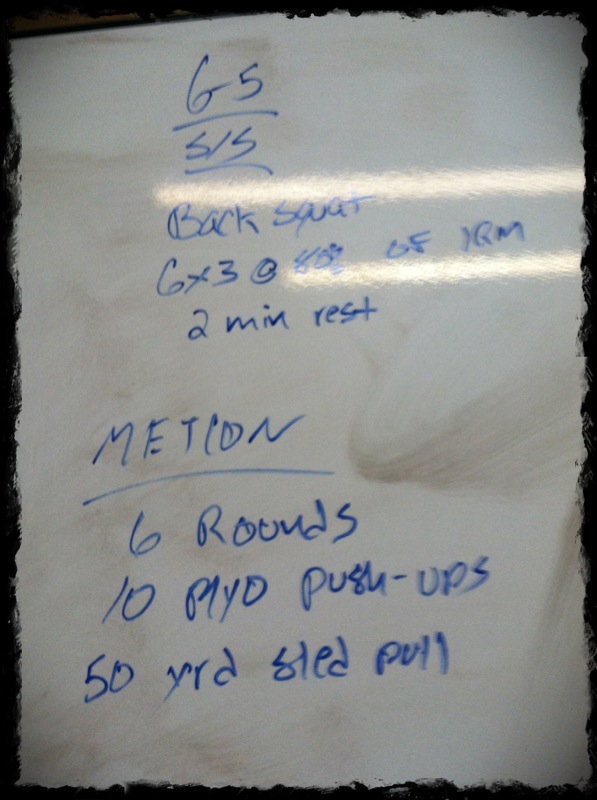 6-5
S/S
Back squat
6x3 @ 80% of 1RM
2 min rest
METCON
6 Rounds
10 Plyo push-ups
50 yrd sled pull